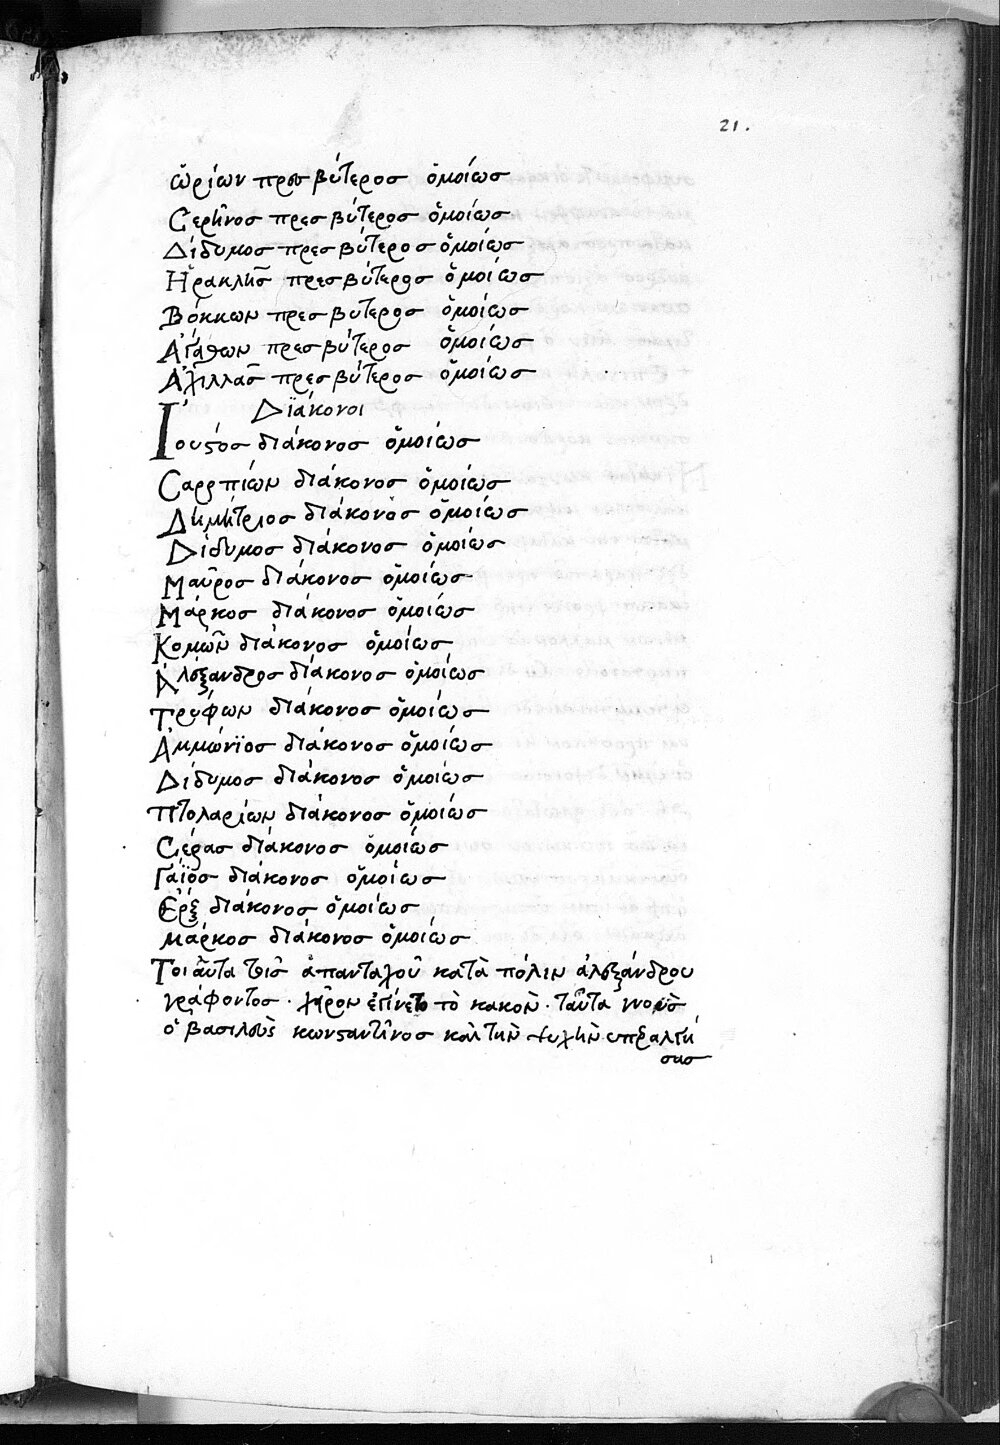 21.
Ὡρίων πρεσβύτερος ὁμοίως
Σερῆνος πρεσβύτερος ὁμοίως
Δίδυμος πρεσβύτερος ὁμοίως
Ἡρακλῆς πρεσβύτερος ὁμοίως
Βόκκων πρεσβύτερος ὁμοίως
Ἀγάθων πρεσβύτερος ὁμοίως
Ἀχιλλᾶς πρεσβύτερος ὁμοίως
Διάκονοι
Ἰοῦστος διάκονος ὁμοίως
Σαραπίων διάκονος ὁμοίως
Δημήτριος διάκονος ὁμοίως
Δίδυμος διάκονος ὁμοίως
Μαῦρος διάκονος ὁμοίως
Μάρκος διάκονος ὁμοίως
Κομὼν διάκονος ὁμοίως
Ἀλέξανδρος διάκονος ὁμοίως
Τρύφων διάκονος ὁμοίως
Ἀμμώνϊος διάκονος ὁμοίως
Δίδυμος διάκονος ὁμοίως
Πτολαρίων διάκονος ὁμοίως
Σέρας διάκονος ὁμοίως
Γάϊος διάκονος ὁμοίως
διάκονος ὁμοίως
Μάρκος διάκονος ὁμοίως
Τοιαῦτα τοῖς ἁπανταχοῦ κατὰ πόλιν ἀλεξάνδρου
γράφοντος · χεῖρον ἐγίνετο τὸ κακὸν · ταῦτα γνοὺς
ὁ βασιλεὺς κωνσταντῖνος καὶ τὴν ψυχὴν ὑπεραλγή
σας